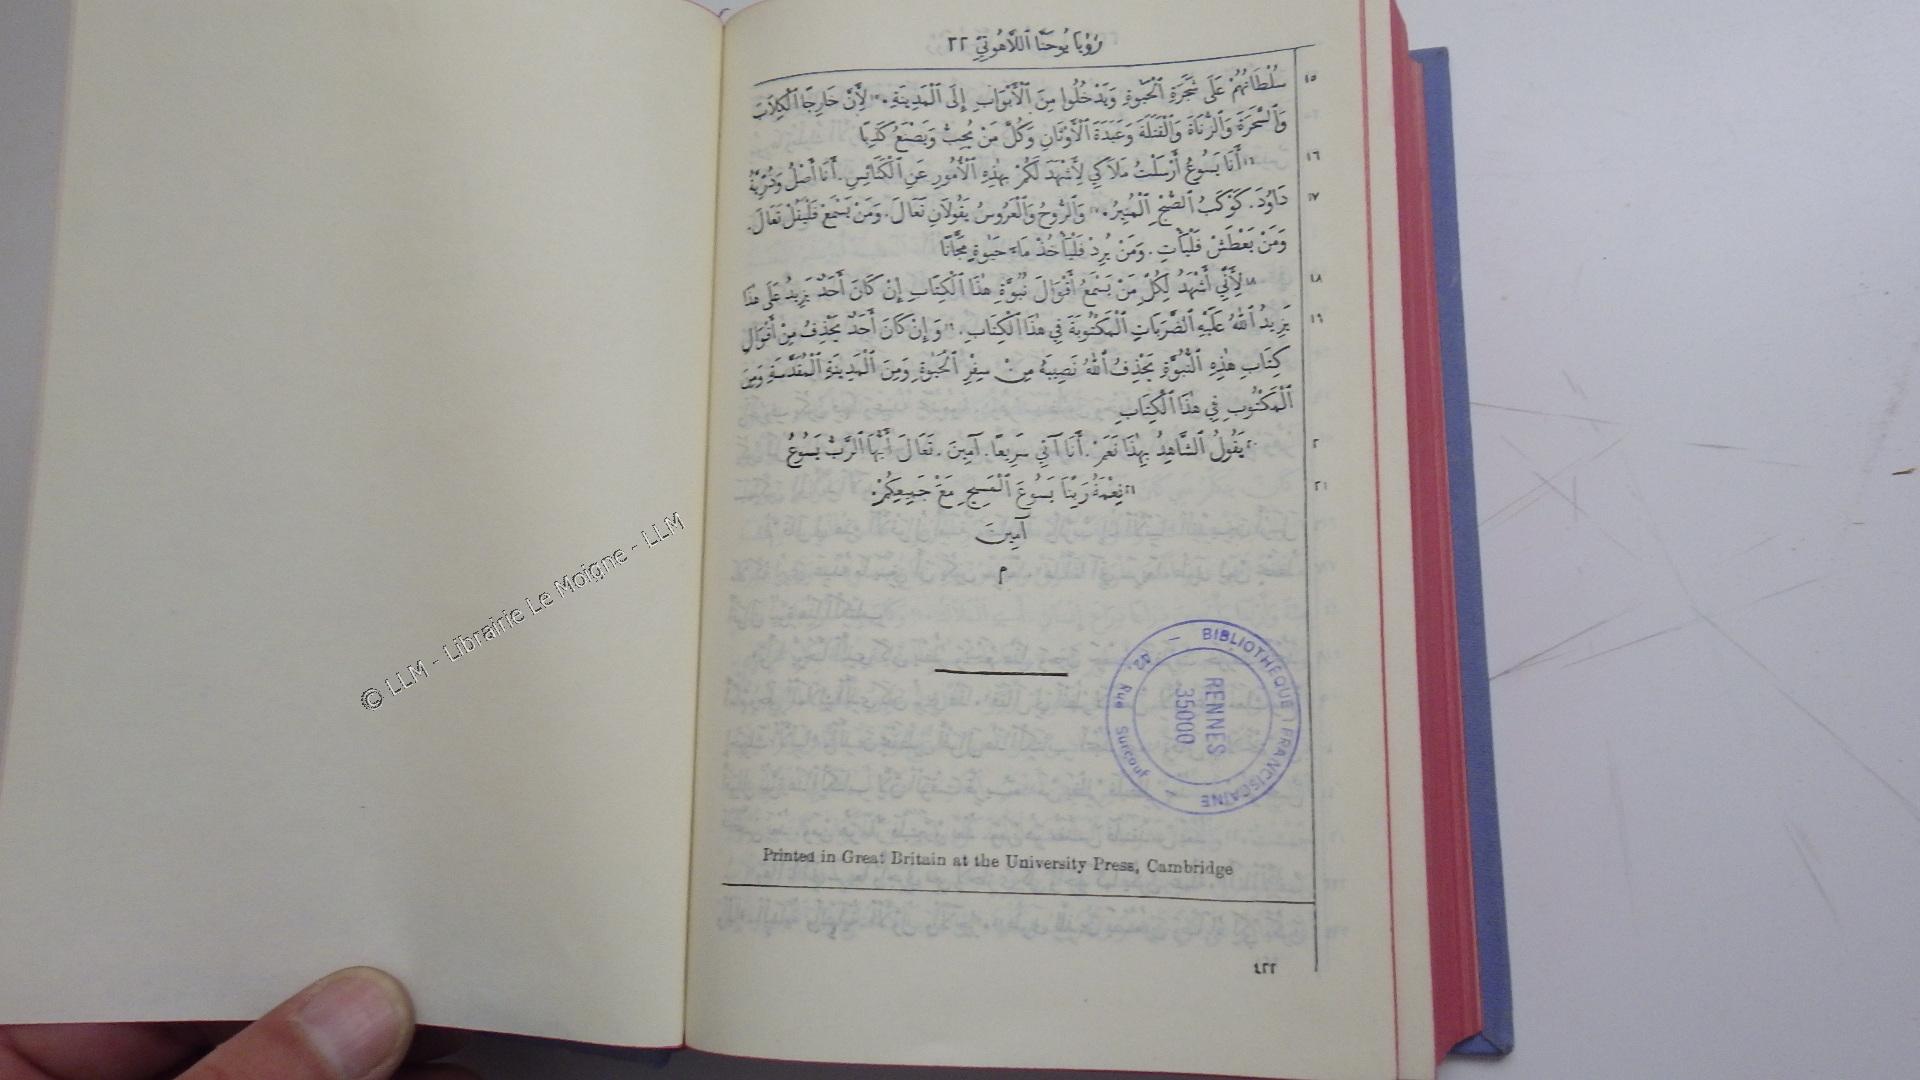 رُؤْيَا يُوحَنَّا ٱللَّاهُوتِيِّ ٢٢
١٥ سُلْطَانُهُمْ عَلَى شَجَرَةِ ٱلْحَيٰوةِ وَيَدْخُلُوا مِنَ ٱلْأَبْوَابِ إِلَى ٱلْمَدِينَةِ. ١٥لِأَنَّ خَارِجًا ٱلْكِلَابَ
وَٱلسَّحَرَةَ وَٱلزُّنَاةَ وَٱلْقَتَلَةَ وَعَبَدَةَ ٱلْأَوْثَانِ وَكُلَّ مَنْ يُحِبُّ وَيَصْنَعُ كَذِبًا
١٦ ١٦أَنَا يَسُوعُ أَرْسَلْتُ مَلَاكِي لِأَشْهَدَ لَكُمْ بِهٰذِهِ ٱلْأُمُورِ عَنِ ٱلْكَنَائِسِ. أَنَا أَصْلُ وَذُرِّيَّةُ
١٧ دَاوُدَ. كَوْكَبُ ٱلصُّبْحِ ٱلْمُنِيرُ. ١٧وَٱلرُّوحُ وَٱلْعَرُوسُ يَقُولَانِ تَعَالَ. وَمَنْ يَسْمَعْ فَلْيَقُلْ تَعَالَ.
وَمَنْ يَعْطَشْ فَلْيَأْتِ. وَمَنْ يُرِدْ فَلْيَأْخُذْ مَاءَ حَيٰوةٍ مَجَّانًا
١٨ ١٨لِأَنِّي أَشْهَدُ لِكُلِّ مَنْ يَسْمَعُ أَقْوَالَ نُبُوَّةِ هٰذَا ٱلْكِتَابِ إِنْ كَانَ أَحَدٌ يَزِيدُ عَلَى هٰذَا
١٩ يَزِيدُ ٱللهُ عَلَيْهِ ٱلضَّرَبَاتِ ٱلْمَكْتُوبَةَ فِي هٰذَا ٱلْكِتَابِ. ١٩وَإِنْ كَانَ أَحَدٌ يَحْذِفُ مِنْ أَقْوَالِ
كِتَابِ هٰذِهِ ٱلنُّبُوَّةِ يَحْذِفُ ٱللهُ نَصِيبَهُ مِنْ سِفْرِ ٱلْحَيٰوةِ وَمِنَ ٱلْمَدِينَةِ ٱلْمُقَدَّسَةِ وَمِنَ
ٱلْمَكْتُوبِ فِي هٰذَا ٱلْكِتَابِ
٢٠ ٢٠يَقُولُ ٱلشَّاهِدُ بِهٰذَا نَعَمْ. أَنَا آتِي سَرِيعًا. آمِينَ. تَعَالَ أَيُّهَا ٱلرَّبُّ يَسُوعُ
٢١ ٢١نِعْمَةُ رَبِّنَا يَسُوعَ ٱلْمَسِيحِ مَعَ جَمِيعِكُمْ.
آمِينَ
م
BIBLIOTHEQUE FRANCISCAINE - 22, Rue Surcouf -
RENNES
35000
Printed in Great Britain at the University Press, Cambridge
٤٢٢
© LLM - Librairie Le Moigne - LLM